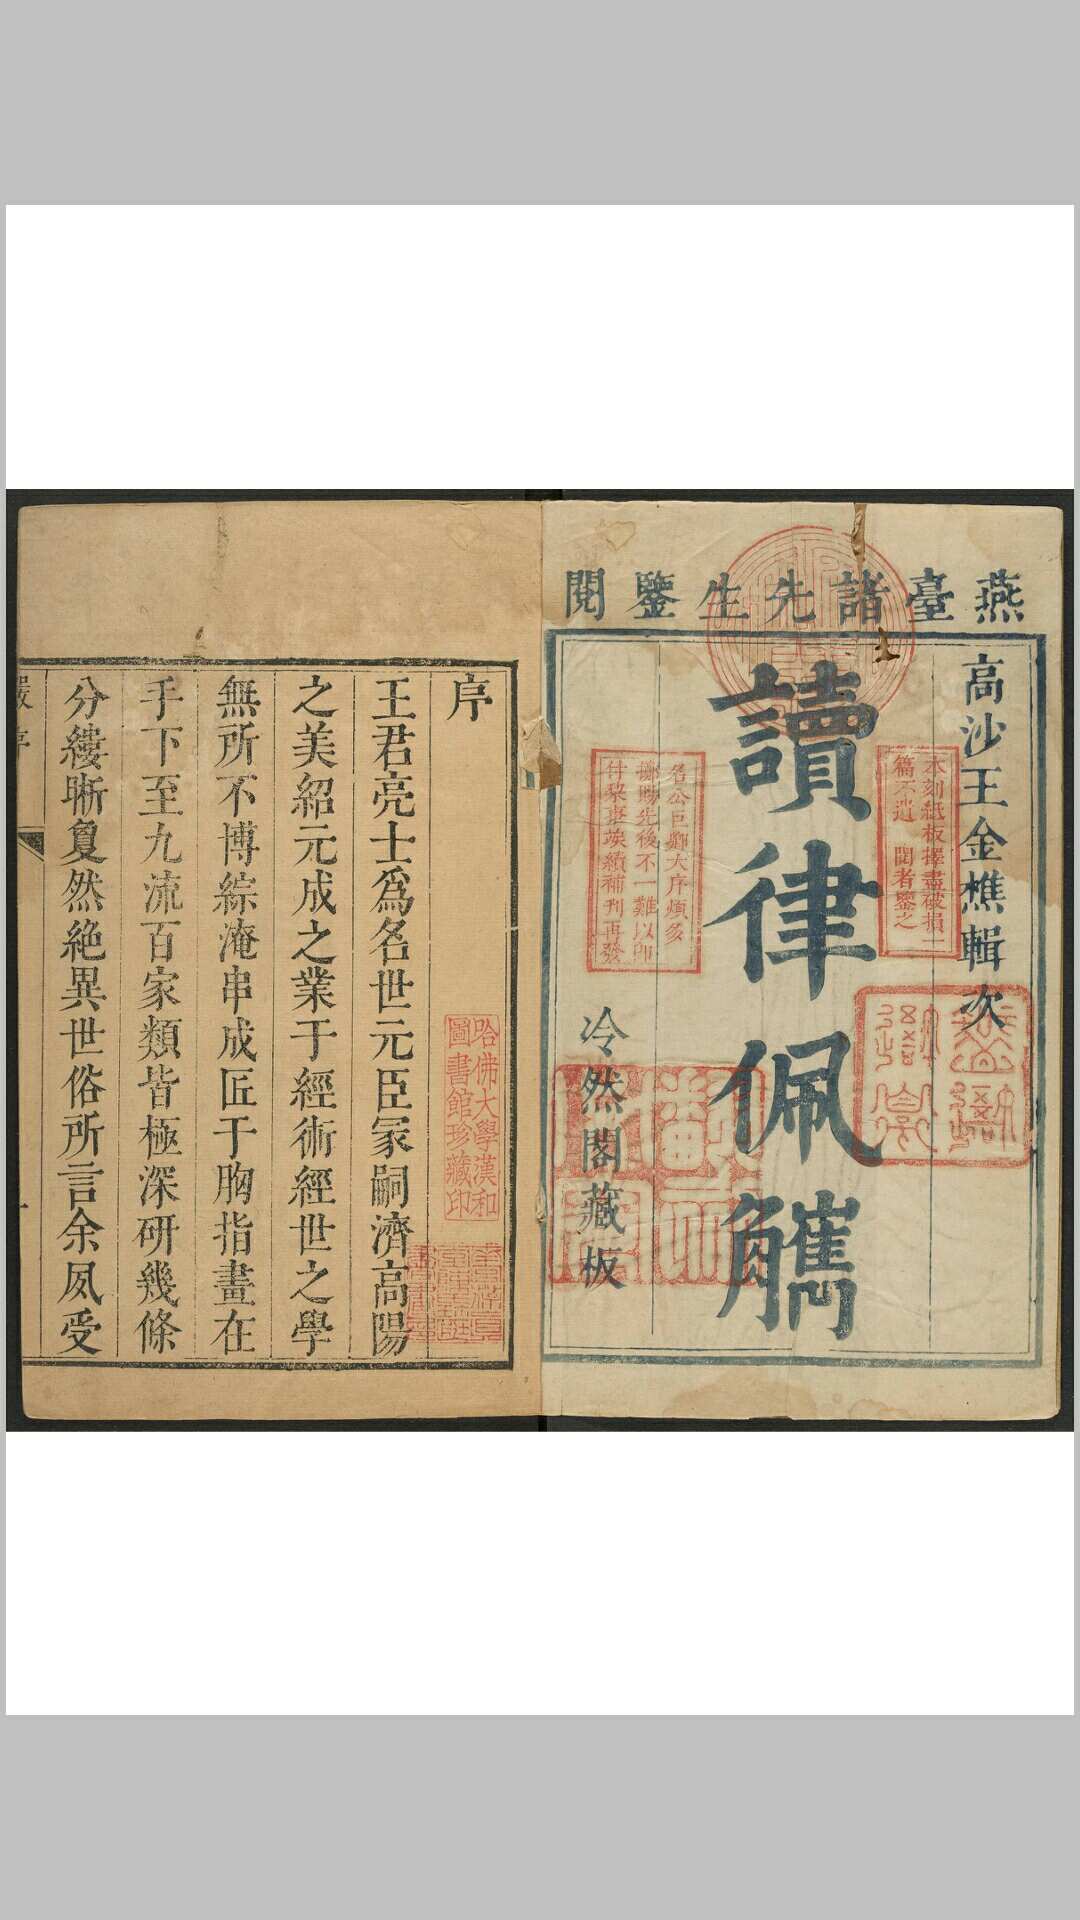 燕臺諸先生鑒閱
高沙王金樵輯次
本刻紙板擇盡破損一
篇不逍 閱者鑒之
讀律佩觿
名公巨卿大序頗多
擲賜先後不一難以即
付棃棗竢續補刊再發
冷然閣藏板
序
哈佛大學漢和
圖書館珍藏印
王君亮士爲名世元臣冢嗣濟高陽
之美紹元成之業于經術經世之學
無所不博綜淹串成匠于胸指畫在
手下至九流百家類皆極深研幾條
分縷晰夐然絶異世俗所言余夙受
嚴序